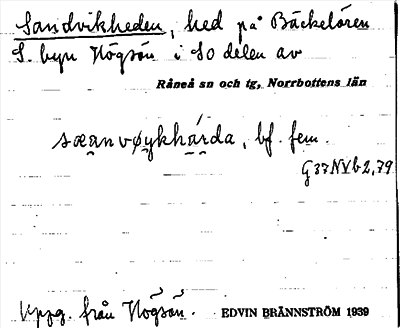 Sandvikheden, hed på Bäckelören
S. byn Högsön i SO delen av
Råneå sn och tg, Norrbottens län
sæanvøykhárda, bf. fem.
G 37 NV b 2,79
Uppg. från Högsön. EDVIN BRÄNNSTRÖM 1939